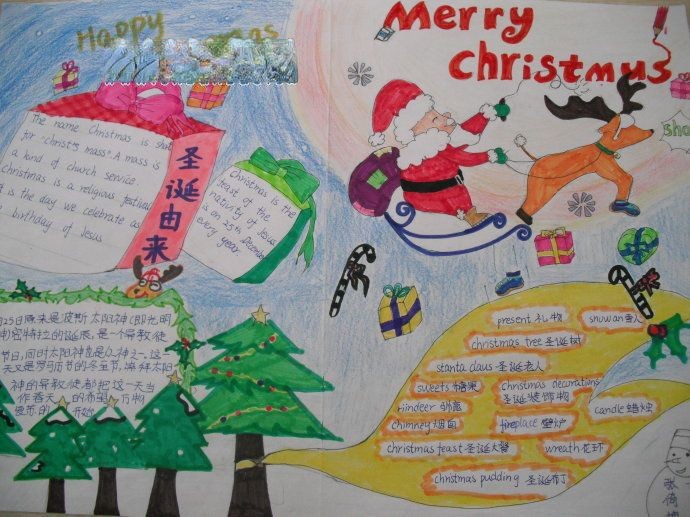 Happy
Merry
Christmus
The name Christmas is
for "christ's mass". A mass is
a kind of church service.
Christmas is a religious festival
is the day we celebrate as
birthday of Jesus
圣诞由来
Christmas is the
feast of the
nativity of Jesus
is on 25th December
every year.
25日原来是波斯太阳神(即光明
密特拉的诞辰,是一个异教徒
节日,同时太阳神也是
天又是罗马历书的冬至节,崇拜太阳
神的异教徒都把这一天当
作春天的希望,万物
开始
present 礼物
snowman雪人
christmas tree圣诞树
stanta claus 圣诞老人
sweets 糖果
christmas decorations
圣诞装饰物
riindeer 驯鹿
candle 蜡烛
chimney烟囱
fireplace 壁炉
christmas feast 圣诞大餐
wreath 花环
christmas pudding 圣诞布丁